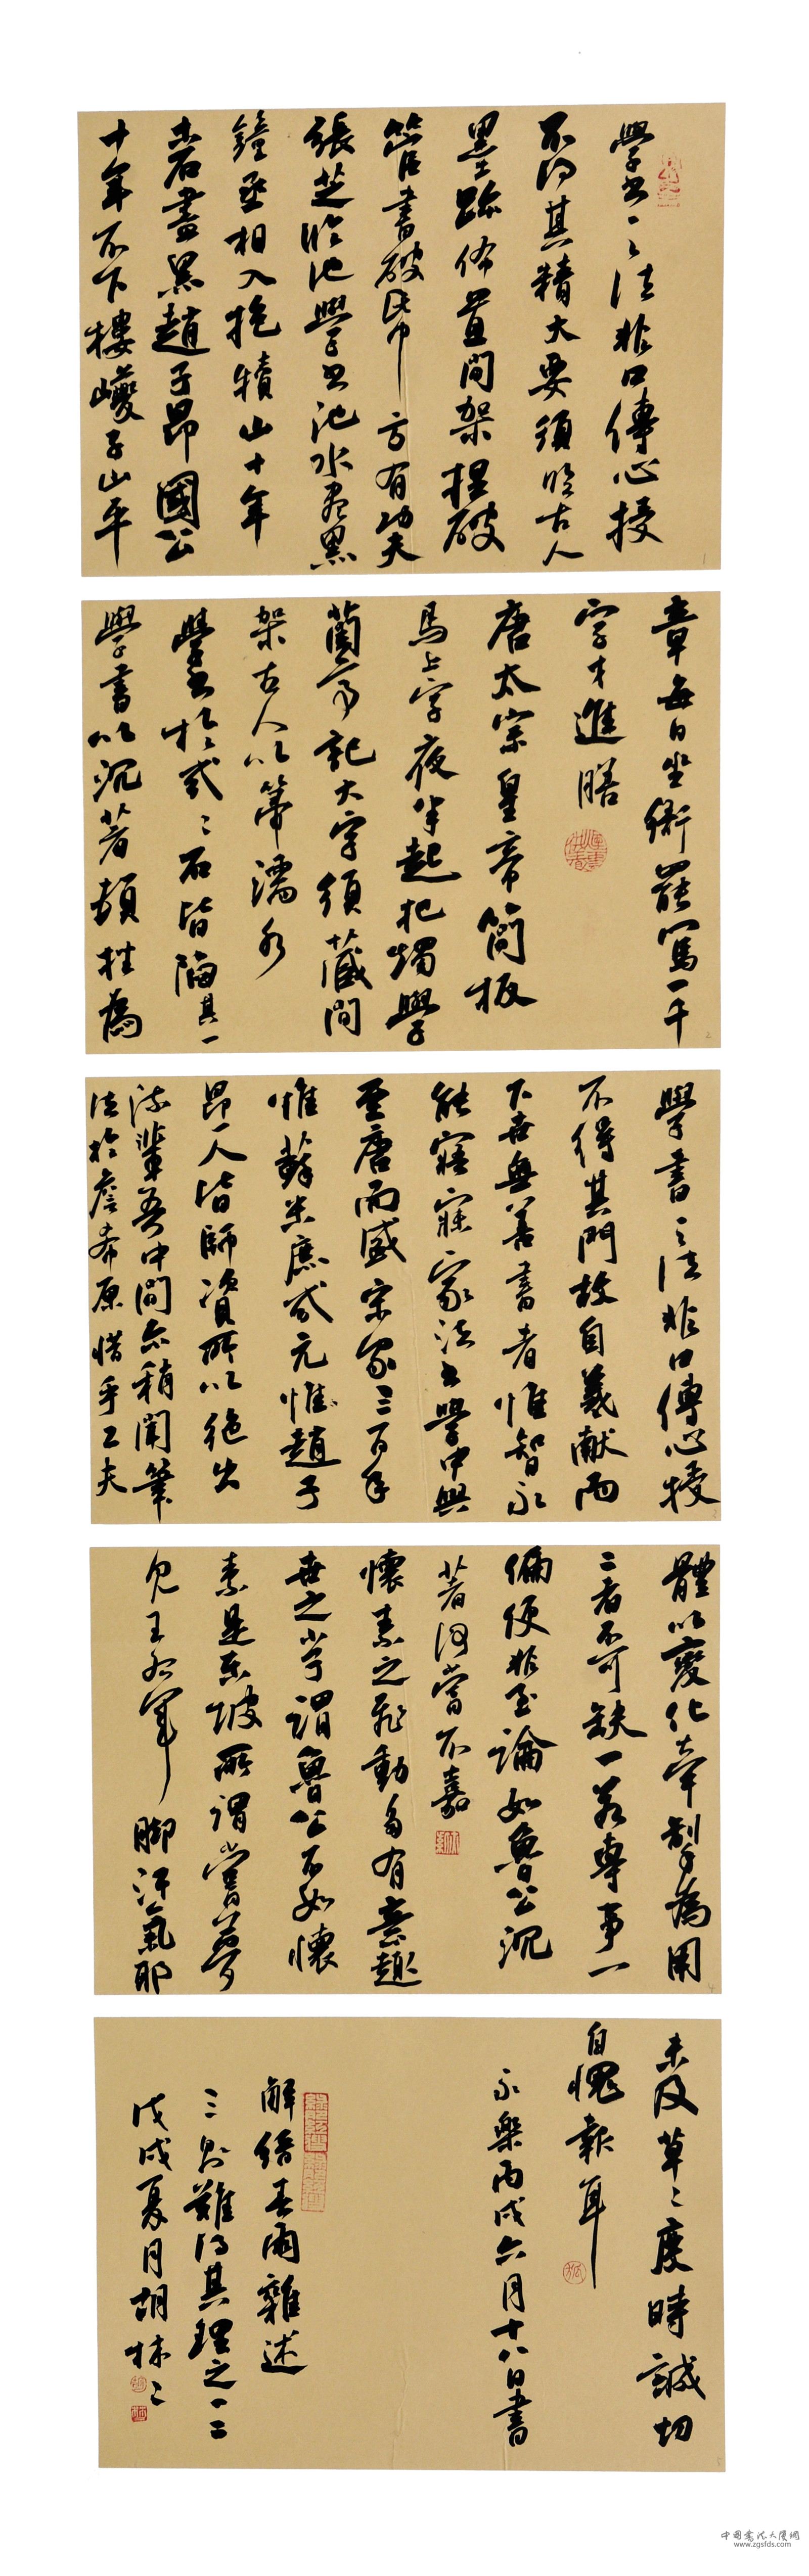 學書之法非口傳心授
不得其精大要須臨古人
墨跡佈置間架揑破
管書破紙方有功夫
張芝臨池學書池水盡黑
鐘丞相入抱犢山十年
木石盡黑趙子昂國公
十年不下樓巙子山平
章每日坐衙罷寫一千
字才進膳
唐太宗皇帝簡板
馬上字夜半起把燭學
蘭亭記大字須藏間
架古人以箒濡水
學書於
二石皆陷其一
學書以沉著頓挫為
學書之法非口傳心授
不得其門故自羲獻而
下世無善書者惟智永
能寤寐家法書學中興
至唐而盛宋家三百年
惟蘇米庶幾元惟趙子
昂一人皆師資所以絕出
流輩吾中間亦稍聞筆
法於詹希原惜乎工夫
體以變化牽掣為用
二者不可缺一若專事一
偏便非至論如魯公沉
著何嘗不嘉
懷素之飛動多有意趣
世之小子謂魯公不如懷
素是東坡所謂嘗夢
見王右軍脚汗氣耶
未及草草度時誠切
自愧赧耳
永樂丙戌六月十八日書
解縉春雨雜述
三則難得其理之一二
戊戌夏月胡
中国书法大厦网
www.zgsfds.com